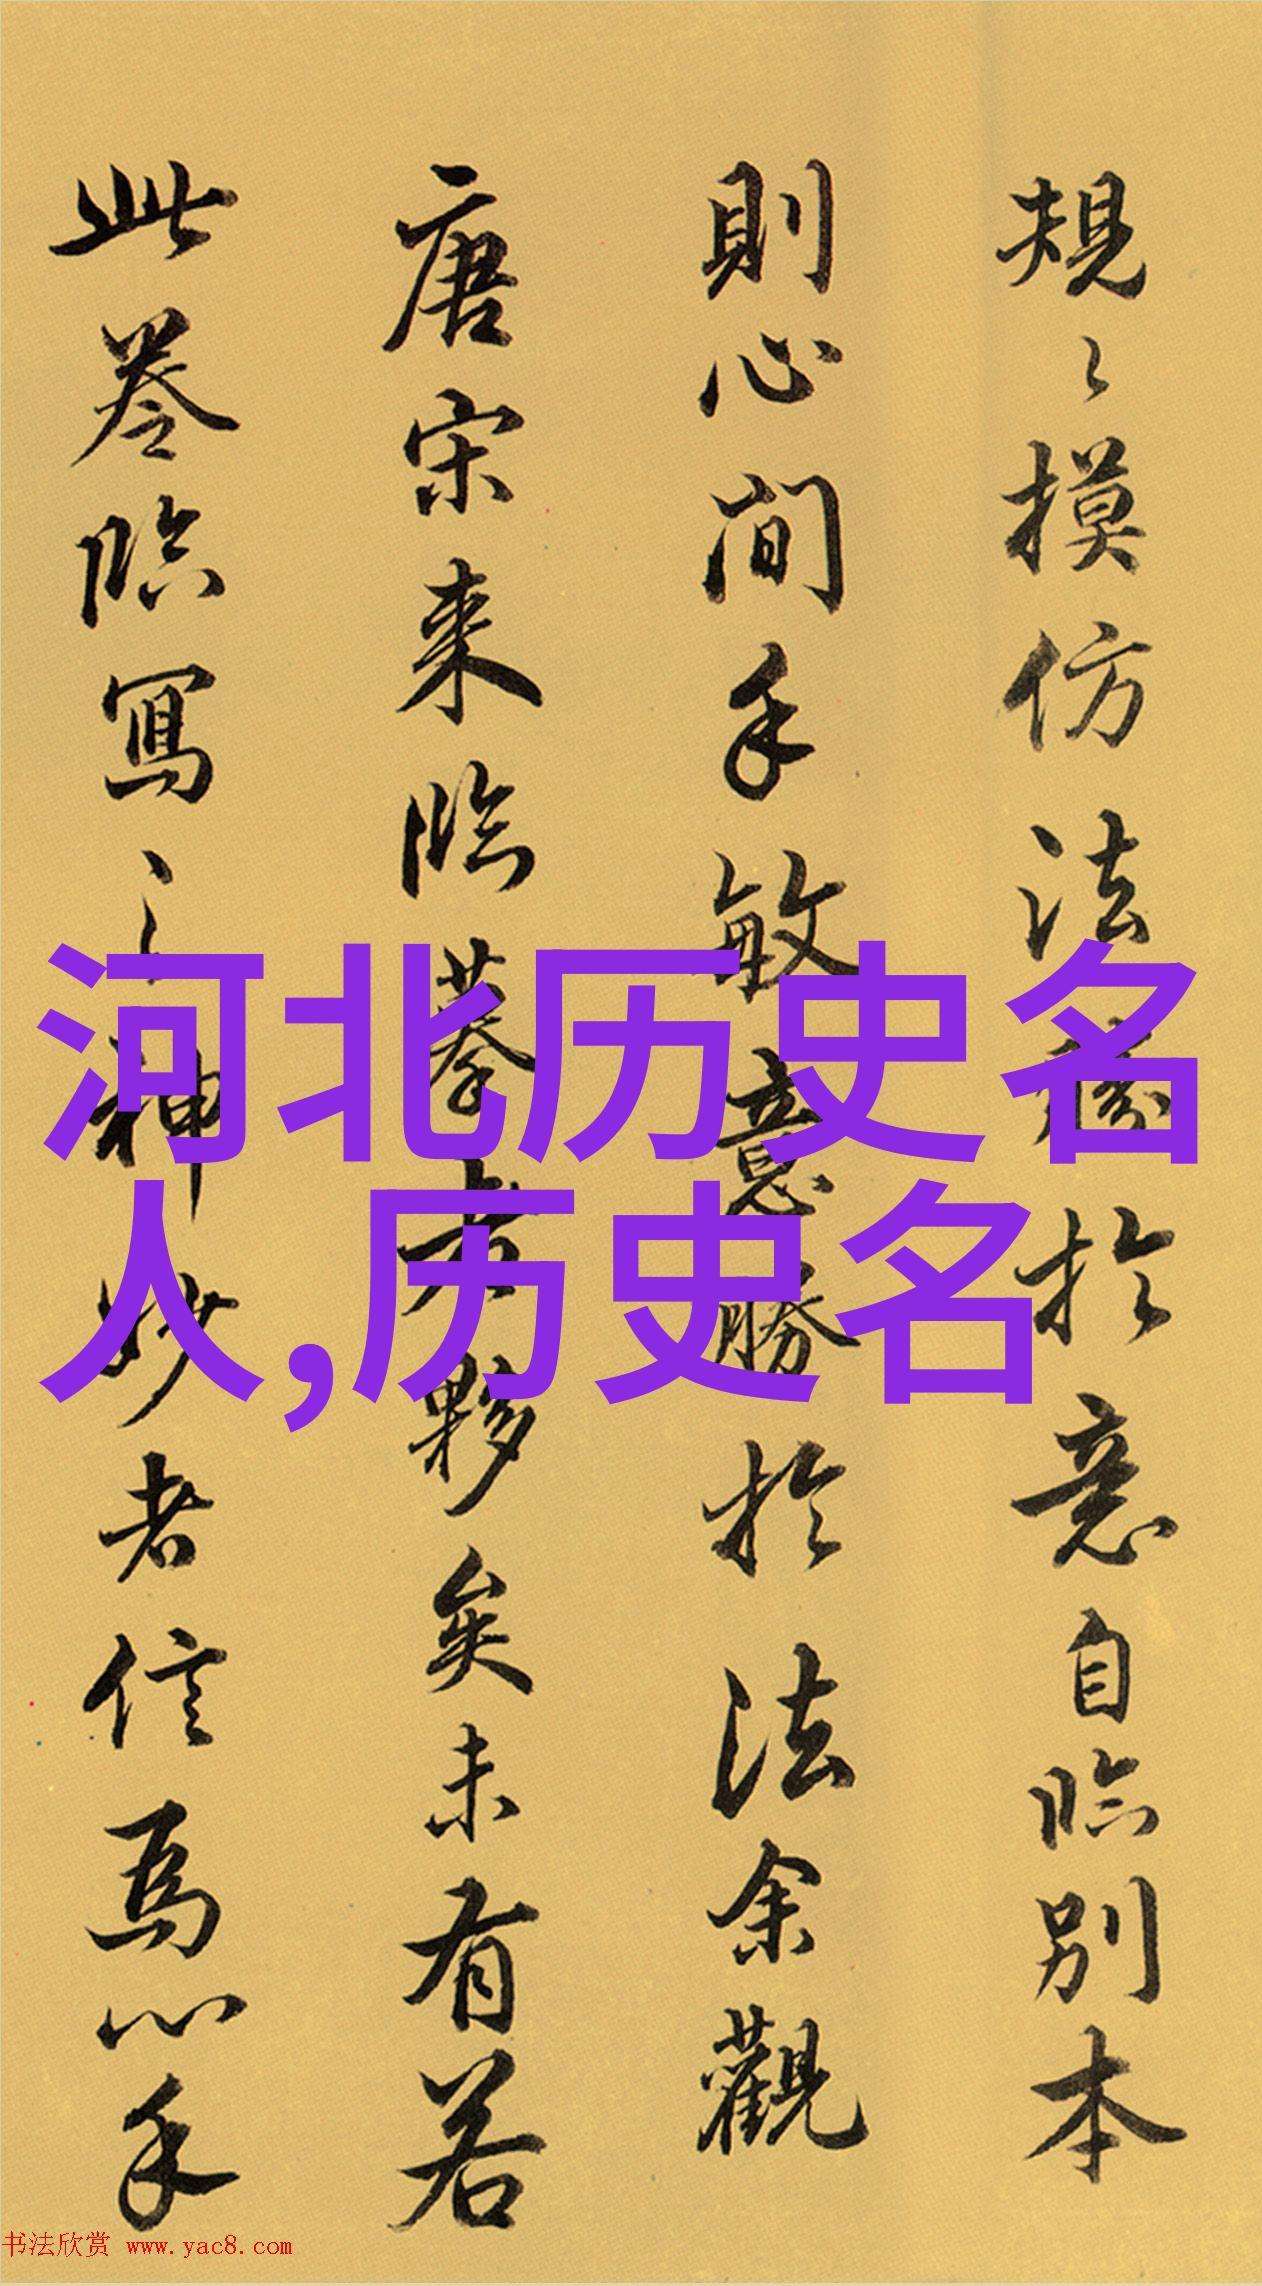 規〻摸仿法勝於意自臨別本
則心閒手敏意勝於法余觀
唐宋来臨摹者夥矣未有若
此卷臨寫之神妙者信焉心手
河北历史名
人,历史名
书法欣赏 www.yac8.com